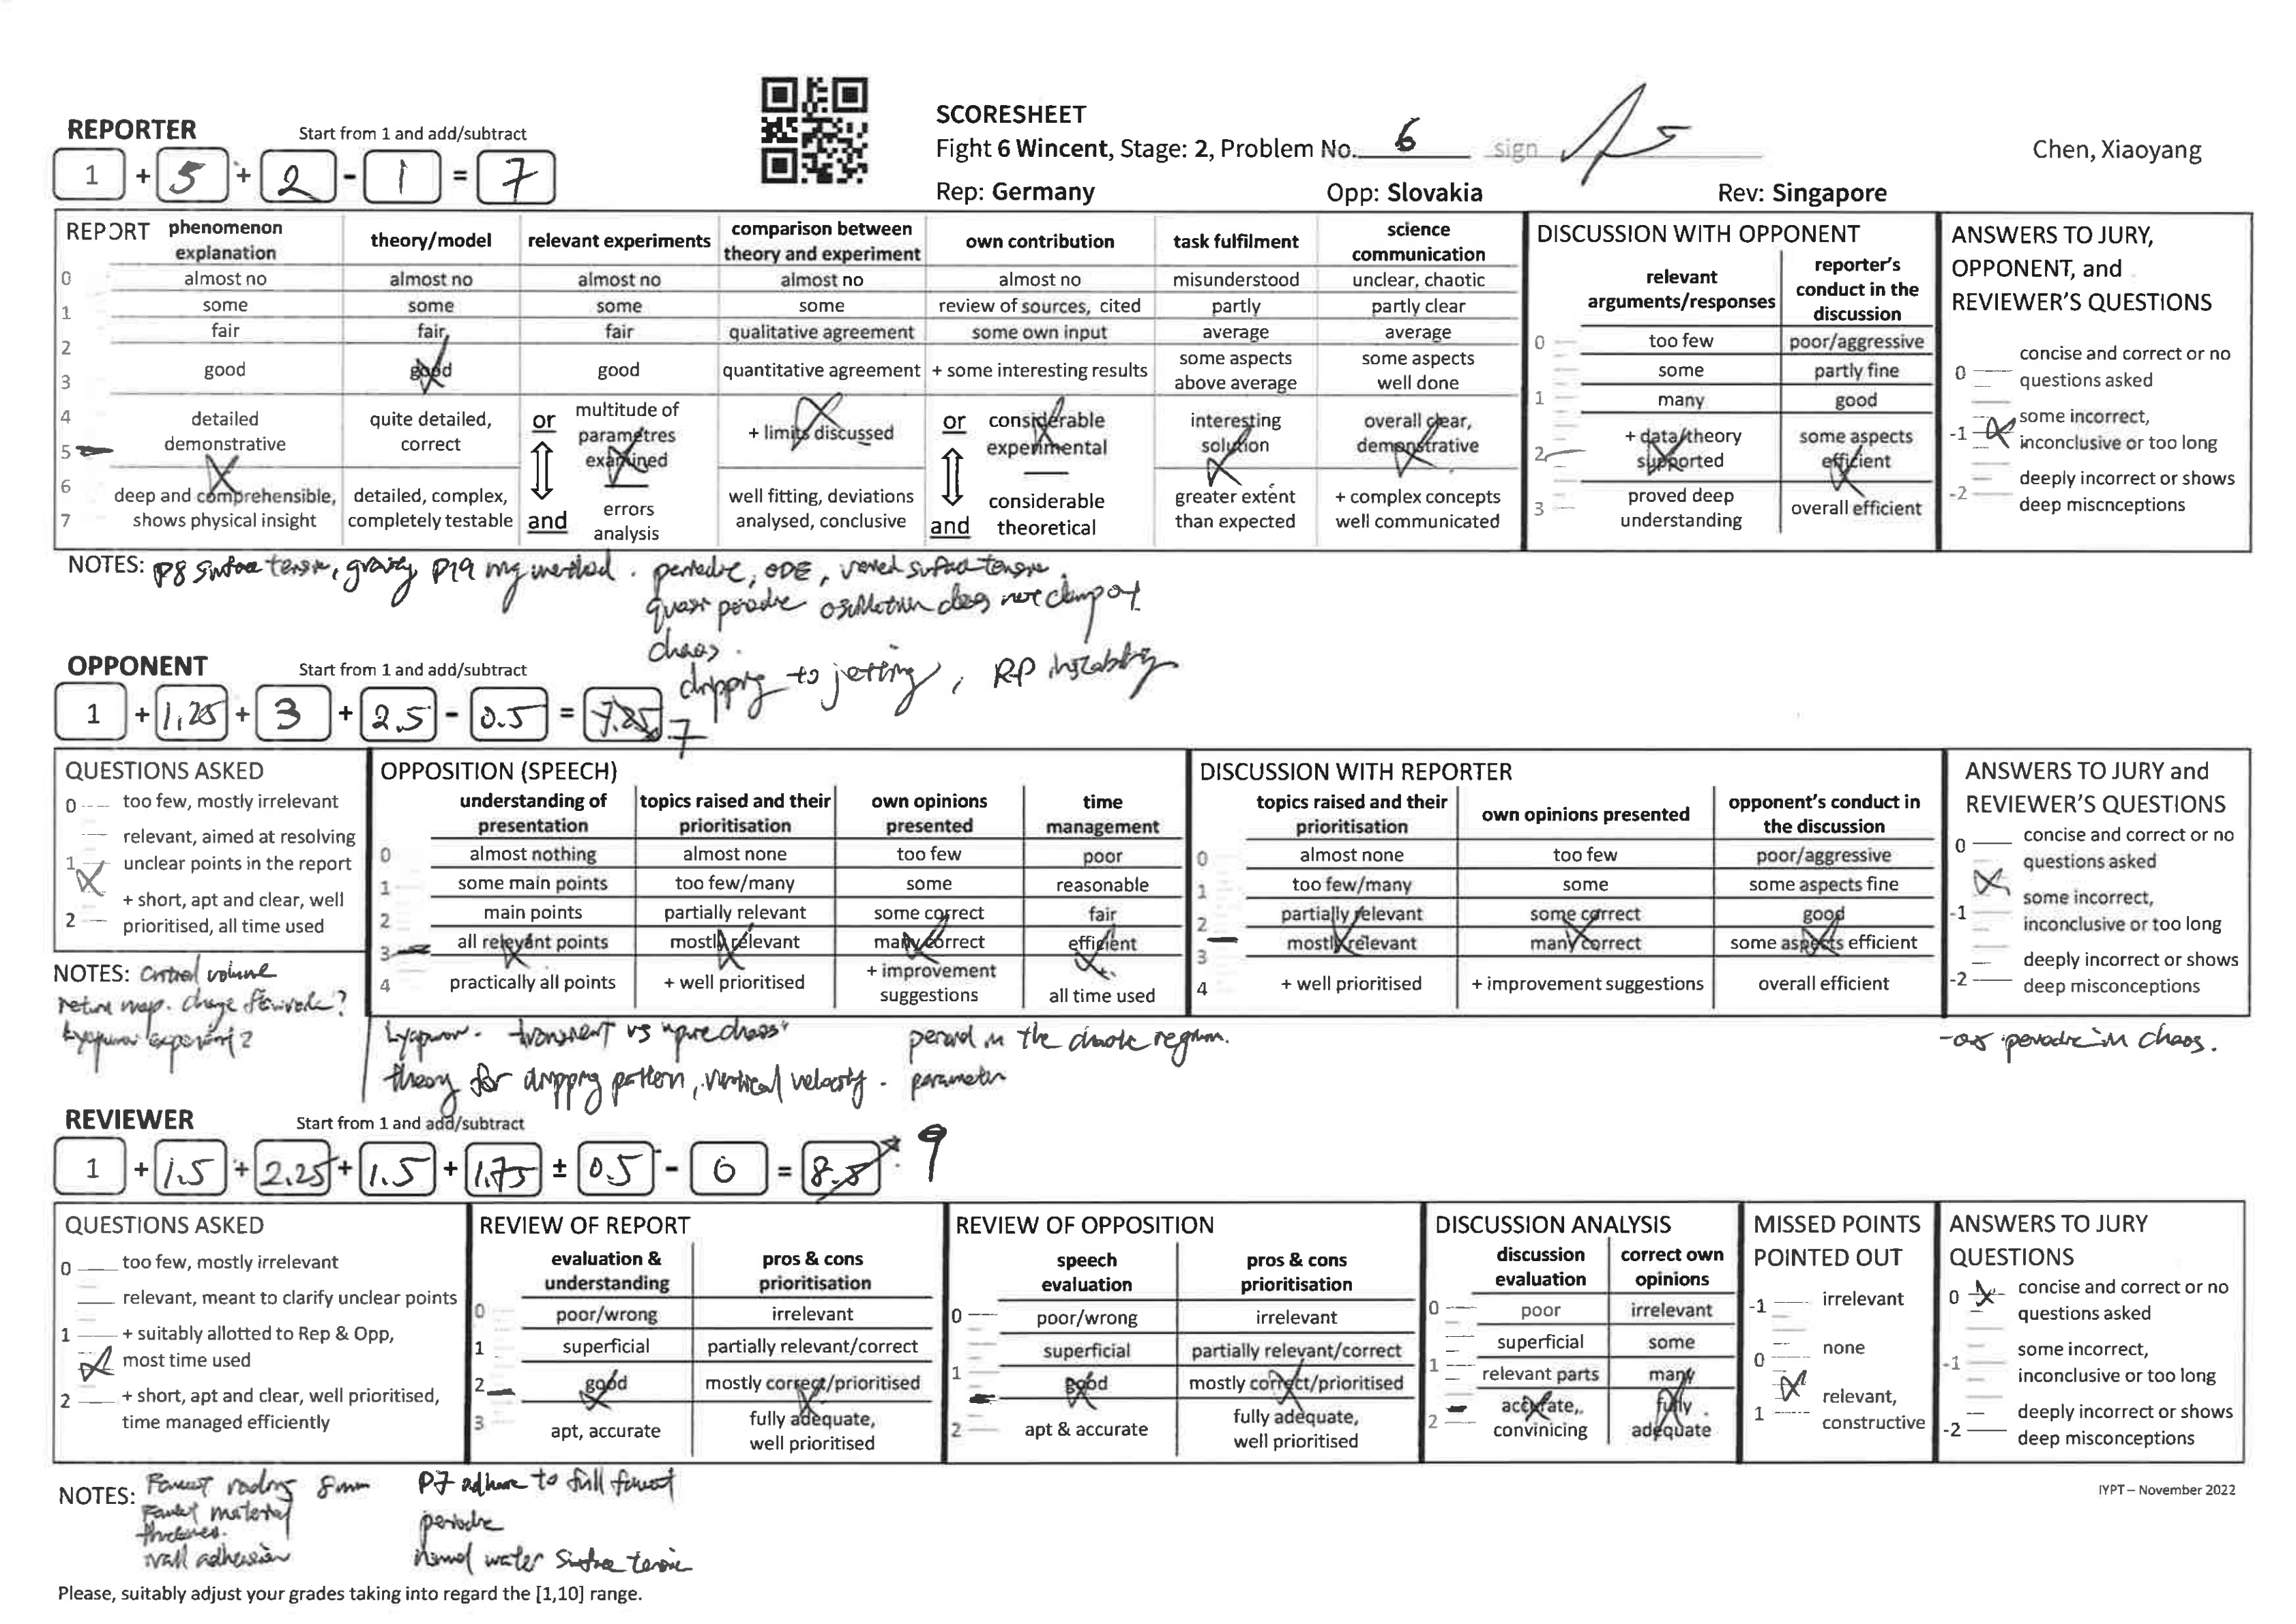 SCORESHEET
REPORTER
Start from 1 and add/subtract
1 + 5 + 2 - 1 = 7
Fight 6 Wincent, Stage: 2, Problem No. 6 sign
Chen, Xiaoyang
Rep: Germany Opp: Slovakia Rev: Singapore
REPORT
phenomenon explanation
theory/model
relevant experiments
comparison between theory and experiment
own contribution
task fulfilment
science communication
0 almost no almost no almost no almost no almost no misunderstood unclear, chaotic
1 some some some some review of sources, cited partly partly clear
2 fair fair fair qualitative agreement some own input average average
3 good good good quantitative agreement + some interesting results some aspects above average some aspects well done
4
5
detailed demonstrative
quite detailed, correct
or multitude of parametres examined
+ limits discussed
or considerable experimental
interesting solution
overall clear, demonstrative
6
7
deep and comprehensible, shows physical insight
detailed, complex, completely testable
and errors analysis
well fitting, deviations analysed, conclusive
and considerable theoretical
greater extent than expected
+ complex concepts well communicated
DISCUSSION WITH OPPONENT
relevant arguments/responses
reporter's conduct in the discussion
0 too few poor/aggressive
some partly fine
1 many good
2 + data/theory supported some aspects efficient
3 proved deep understanding overall efficient
ANSWERS TO JURY, OPPONENT, and REVIEWER'S QUESTIONS
0 concise and correct or no questions asked
-1 some incorrect, inconclusive or too long
-2 deeply incorrect or shows deep miscnceptions
NOTES: P8 surface tension, gravity P19 my method. periodic, ODE, varied surface tension.
quasi periodic oscillation does not damp out
chaos.
dripping to jetting, RP instability
OPPONENT
Start from 1 and add/subtract
1 + 1.25 + 3 + 2.5 - 0.5 = 7.25 7
QUESTIONS ASKED
0 too few, mostly irrelevant
relevant, aimed at resolving
1 unclear points in the report
+ short, apt and clear, well
2 prioritised, all time used
NOTES: Critical volume
return map. change
Lyapunov exponent?
OPPOSITION (SPEECH)
understanding of presentation
topics raised and their prioritisation
own opinions presented
time management
0 almost nothing almost none too few poor
1 some main points too few/many some reasonable
2 main points partially relevant some correct fair
3 all relevant points mostly relevant many correct efficient
4 practically all points + well prioritised + improvement suggestions all time used
DISCUSSION WITH REPORTER
topics raised and their prioritisation
own opinions presented
opponent's conduct in the discussion
0 almost none too few poor/aggressive
1 too few/many some some aspects fine
2 partially relevant some correct good
3 mostly relevant many correct some aspects efficient
4 + well prioritised + improvement suggestions overall efficient
ANSWERS TO JURY and REVIEWER'S QUESTIONS
0 concise and correct or no questions asked
-1 some incorrect, inconclusive or too long
-2 deeply incorrect or shows deep misconceptions
Lyapunov. transient vs "pure chaos" period in the chaotic regime.
theory for dripping pattern, vertical velocity. parameter
-0.5 periodic in chaos.
REVIEWER
Start from 1 and add/subtract
1 + 1.5 + 2.25 + 1.5 + 1.75 ± 0.5 - 0 = 8.5 9
QUESTIONS ASKED
0 too few, mostly irrelevant
relevant, meant to clarify unclear points
1 + suitably allotted to Rep & Opp, most time used
2 + short, apt and clear, well prioritised, time managed efficiently
REVIEW OF REPORT
evaluation & understanding
pros & cons prioritisation
0 poor/wrong irrelevant
1 superficial partially relevant/correct
2 good mostly correct/prioritised
3 apt, accurate fully adequate, well prioritised
REVIEW OF OPPOSITION
speech evaluation
pros & cons prioritisation
0 poor/wrong irrelevant
superficial partially relevant/correct
1 good mostly correct/prioritised
2 apt & accurate fully adequate, well prioritised
DISCUSSION ANALYSIS
discussion evaluation
correct own opinions
0 poor irrelevant
superficial some
1 relevant parts many
2 accurate, convinicing fully adequate
MISSED POINTS POINTED OUT
-1 irrelevant
0 none
relevant,
1 constructive
ANSWERS TO JURY QUESTIONS
0 concise and correct or no questions asked
-1 some incorrect, inconclusive or too long
-2 deeply incorrect or shows deep misconceptions
NOTES: Faucet radius 8mm
Faucet material
thickness.
wall adhesion
P7 adhere to full faucet
periodic
water surface tension
IYPT – November 2022
Please, suitably adjust your grades taking into regard the [1,10] range.